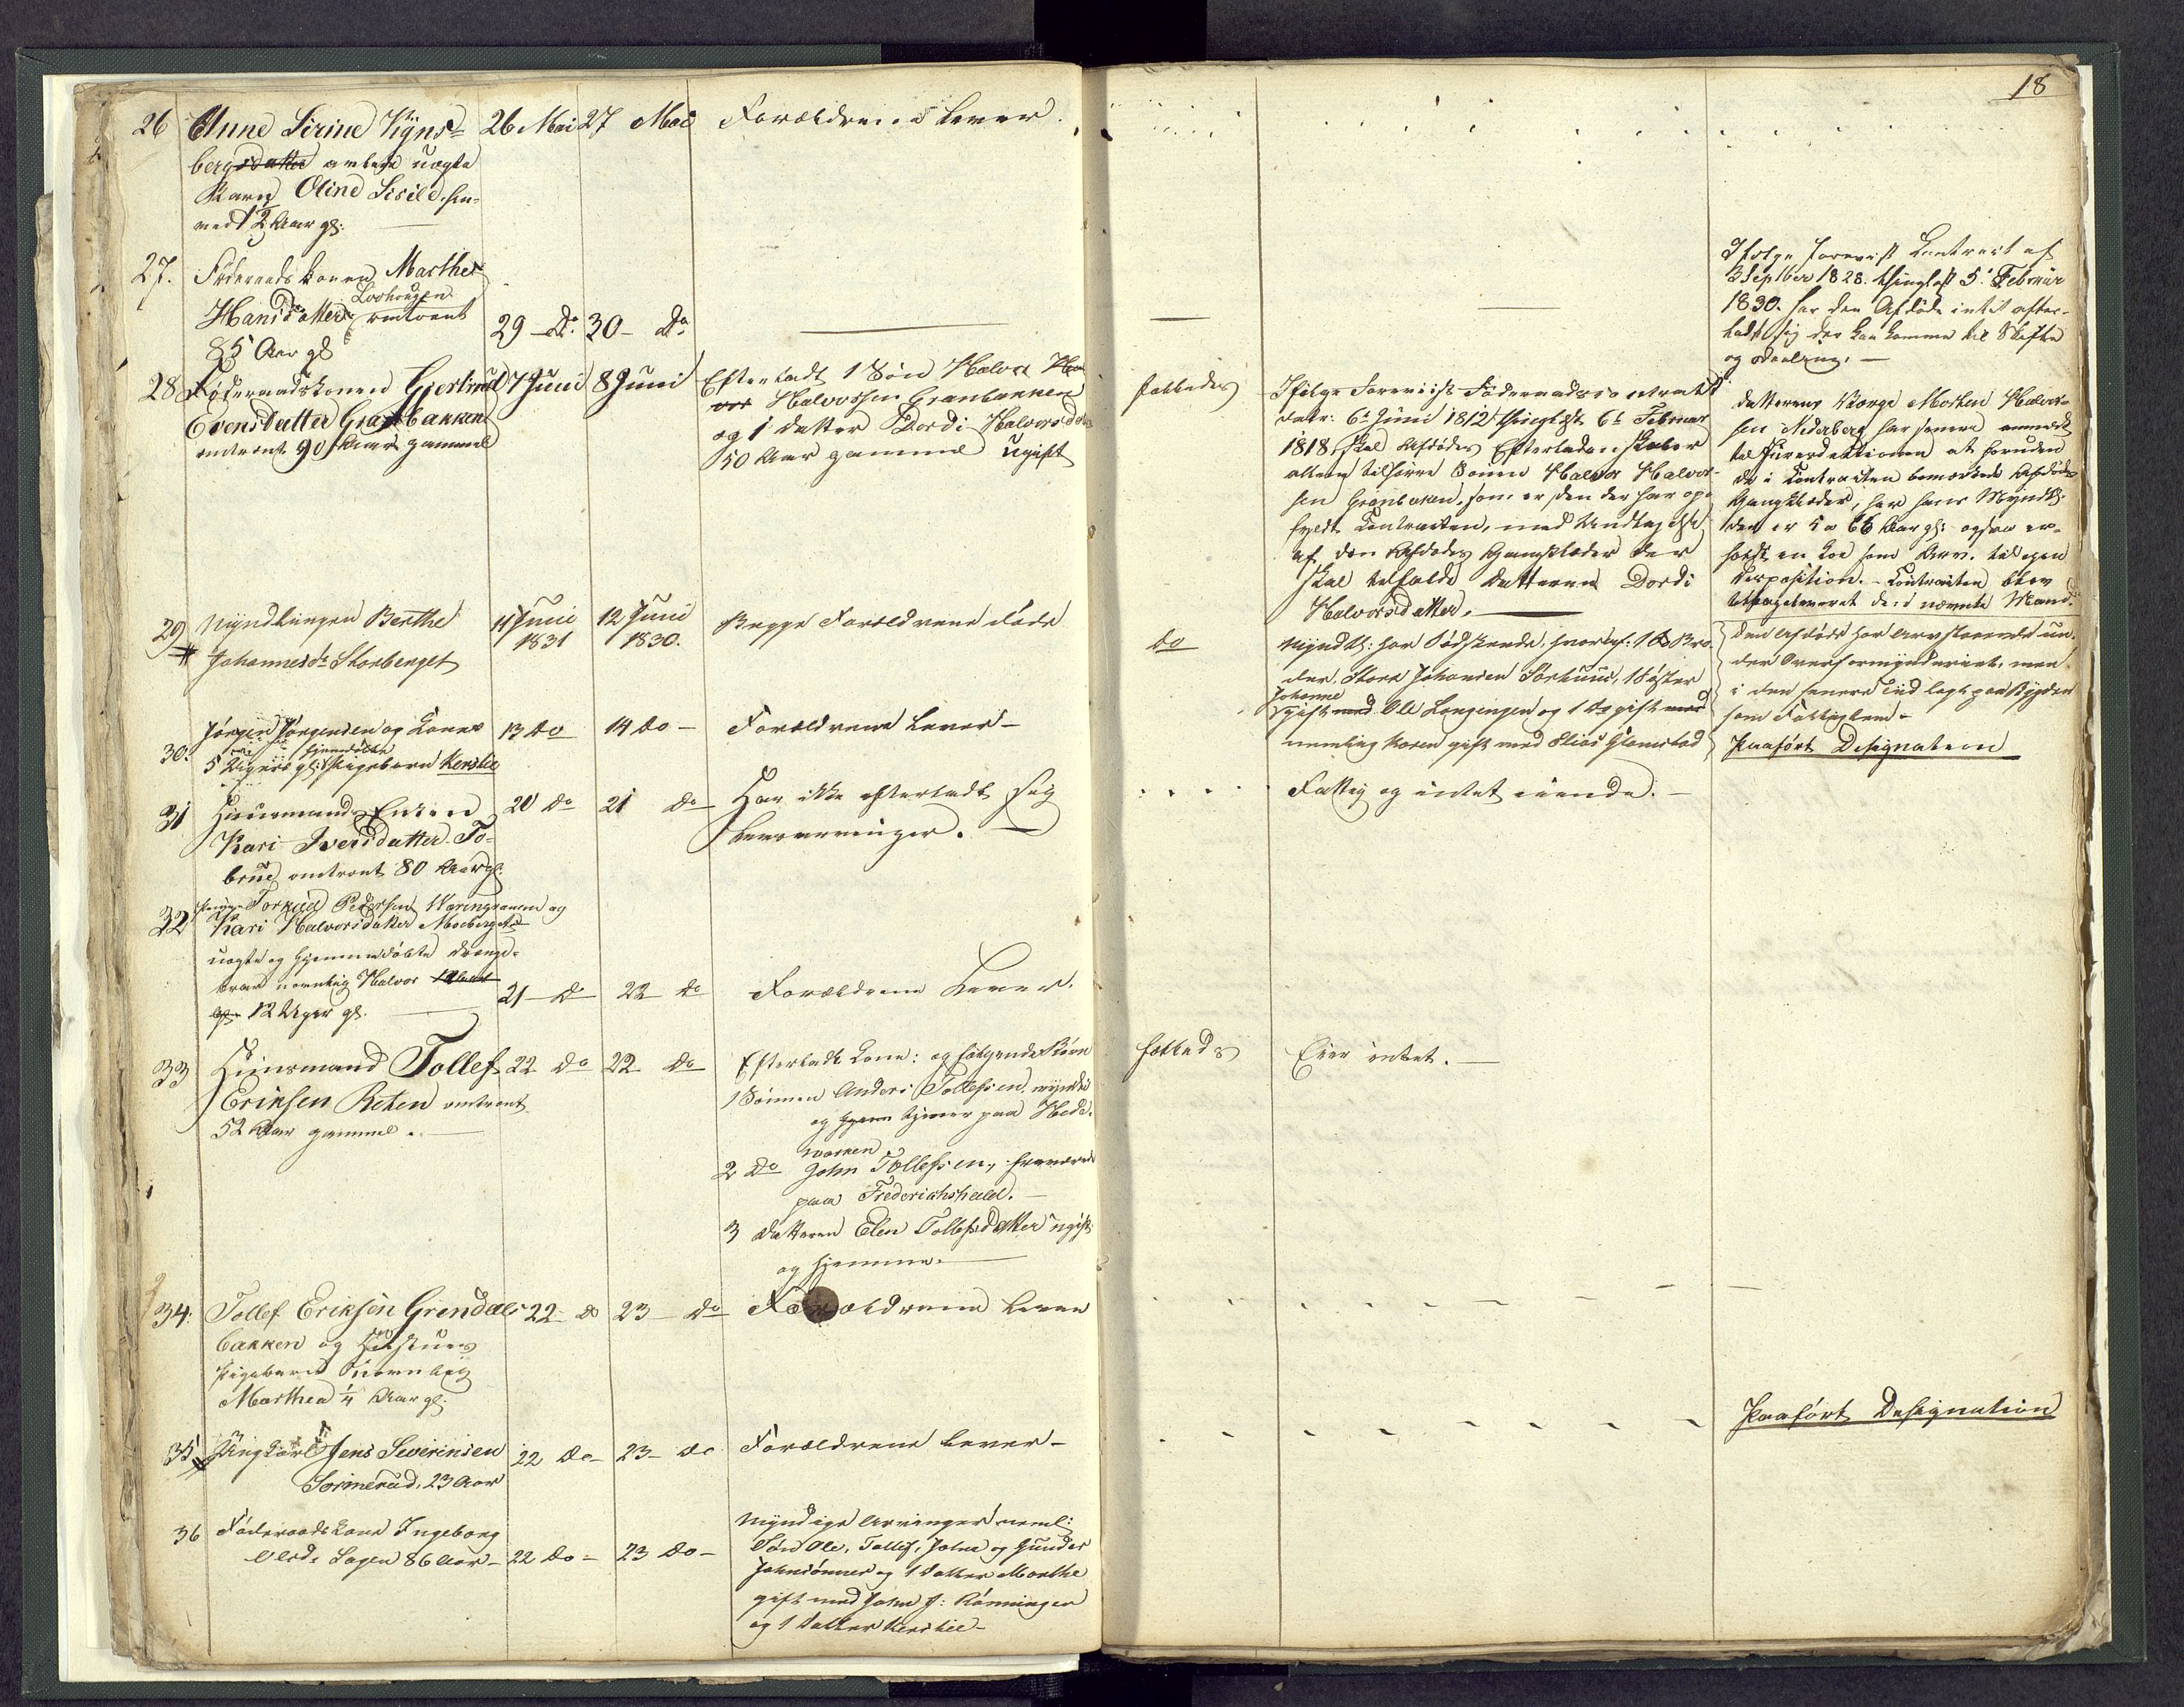 18
26 Anne Sirine Vigns-
berg datter uægte
Barn Oline Sisile
1/2 Aar gl:
26 Mai 27 Mai Forældrene lever.
27. Føderaadskonen Marthe
Hansdatter Lovhougen omtrent
85 Aar gl
29 - Do 30 - Do
Ifølge forevist Contract af
3 Septber 1828. thinglæst 5 Februar
1830. har den Afdøde intet efter-
ladt sig der kan komme til Skifte
og Deeling. —
28 Føderaadskonen Gjertrud
Evensdatter Granbakken
omtrent 90 Aar gammel
7 Juni 8 Juni
Efterladt 1 Søn Halvor
Halvorsen Granbakken
og 1 datter Dordi Halvorsdatter
50 Aar gammel ugift
Ifølge Foreviist Føderaadscontract
datr: 6te Juni 1812 thinglæst 6te Februar
1818, skal Afdødes Efterladenskaber
allene tilhøre Sønnen Halvor Halvor-
sen Granbaken, som er den der har op-
fyldt Contracten, med Undtagelse
af den Afdødes Gangklæder der
skal tilfalde datteren Dordi
Halvorsdatter. —
datterens Værge Morten Halvor-
sen Nederberg har senere anmeldt
at foruden
de i Contracten bemærkede Afdødes
Gangklæder, har hans Myndtl:
der er 5 a 66 Aar gl: ogsaa er-
holdt en Koe som Arv. til egen
Disposition. - Contracten blev
tilbageleveret den nævnte Mand.
29 Myndlingen Berthe
Johannesdr Storberget
11 Juni
1831
12 Juni
1830.
Begge Forældrene døde
do
Myndtl: har Sødskende, hvoraf: 1 Bro-
der, Johansen Sørhuus, 1 Søster
Johanne
gift med Ole Langengen og 1 Do gift med
nemlig Karen gift med Elias Glamstad
Den Afdøde har Arv staaende un-
der Overformynderiet, men
i den senere Tid lagt paa Bygden
som Fattiglem -
Paaført Designation
30. Jørgen Jørgensen og Kones
5 Uger gl: Pigebarn Kerstie
13 Do 14 Do - Forældrene lever -
31 Huusmands Enken
Kari Iversdatter To-
brue omtrent 80 Aar gl:
20 Do 21 Do
Har ikke efterladt sig
Livsarvinger. —
Fattig og intet eiende. —
32 Torkild Pedersen og
Kari Halvorsdatter Moeberget
uægte og hjemmedøbte Drenge-
barn nemlig Halvor
12 Uger gl.
21 - Do 22 Do Forældrene Lever.
33 Huusmand Tollef
Eriksen Roten omtrent
52 Aar gammel. —
22 Do 22 Do
Efterladt Kone: og følgende Børn
1 Sønnen Anders Tollefsen. myndig
og tjener paa Hede-
marken
2 Do John Tollefsen,
paa Frederichshald. —
3 datteren Elen Tollefsdatter ugift
og hjemme. —
Eier intet. —
34: Tollef Eriksen Grendals
bakken og Hustrues
Pigebarn nemlig
Marthea 1/4 Aar gl:
22 - Do 23 - Do Forældrene lever
35 Ungkarl Jens Severinsen
Sormerud, 23 Aar
22 Do - 23 - Do Forældrene lever -
Paaført Designation
36 Føderaadskone Ingeborg
Olsd. Sagen 86 Aar -
22 Do - 23 Do -
Myndige Arvinger neml:
Søn Ole, Tollef, John og Gunder
Johnsønner og 1 datter Marthe
gift med John J: Rønningen
og 1 datter Kerstie -